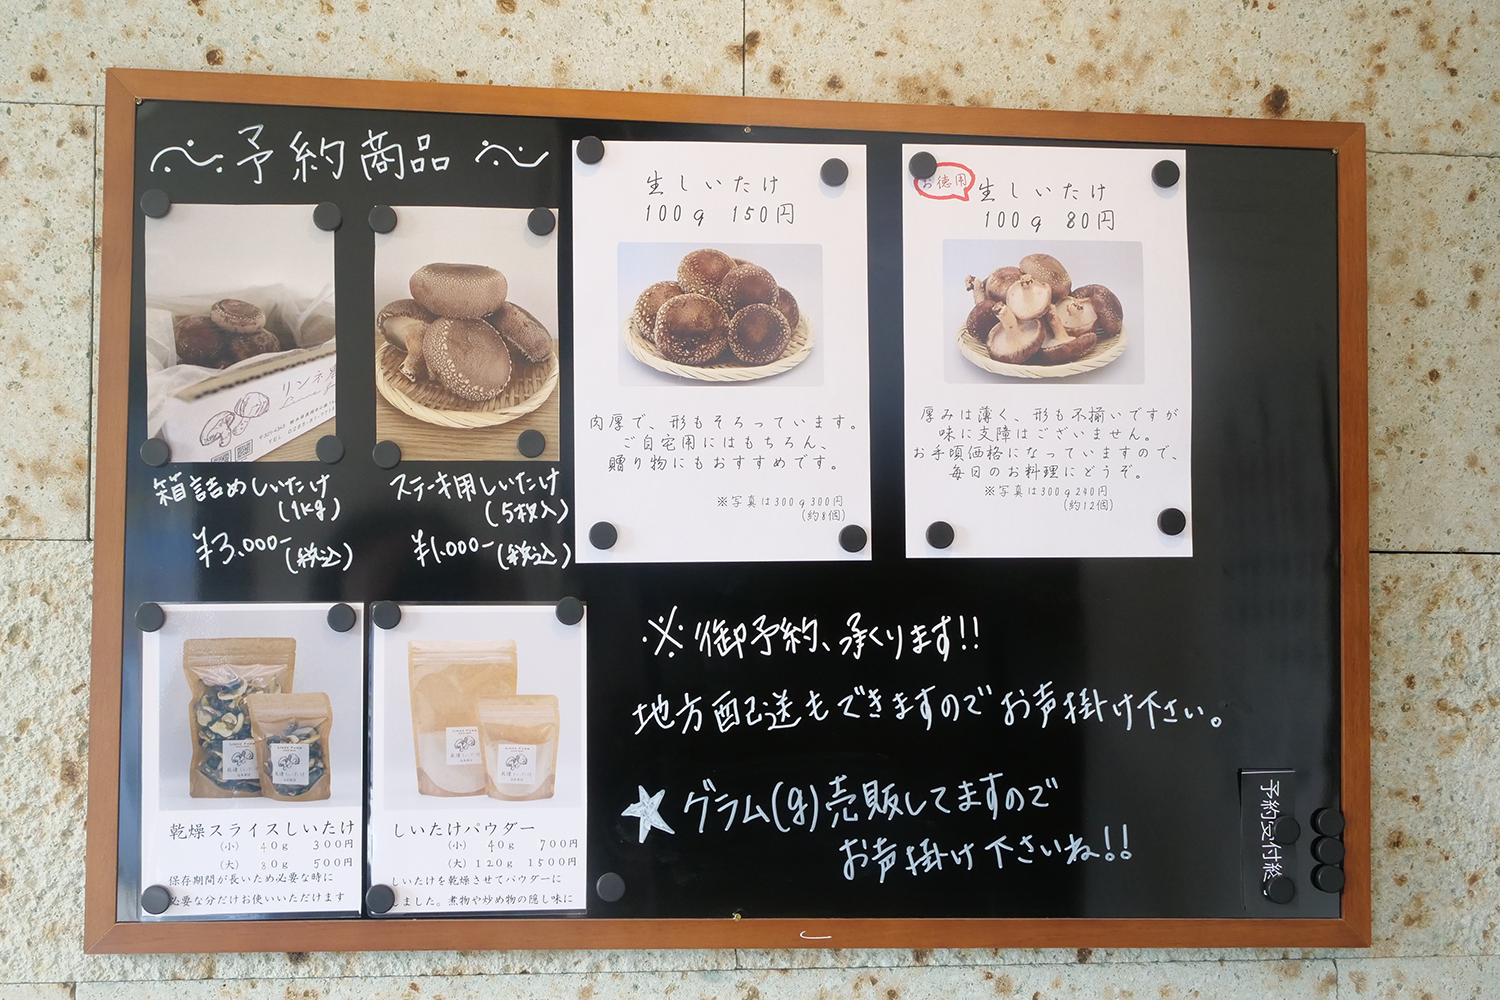 〜予約商品〜
リンネ
TEL
箱詰めしいたけ
(1kg)
¥3,000-(税込)
ステーキ用しいたけ
(5枚入)
¥1,000-(税込)
生しいたけ
100g 150円
肉厚で、形もそろっています。
ご自宅用にはもちろん、
贈り物にもおすすめです。
※写真は300g300円
(約8個)
お徳用
生しいたけ
100g 80円
厚みは薄く、形も不揃いですが
味に支障はございません。
お手頃価格になっていますので、
毎日のお料理にどうぞ。
※写真は300g240円
(約12個)
乾燥スライスしいたけ
(小) 40g 300円
(大) 80g 500円
保存期間が長いため必要な時に
必要な分だけお使いいただけます
しいたけパウダー
(小) 40g 700円
(大) 120g 1500円
しいたけを乾燥させてパウダーに
しました。煮物や炒め物の隠し味に
※御予約、承くります!!
地方配送もできますのでお声掛け下さい。
★グラム(g)売販してますので
お声掛け下さいね!!
予約受付終